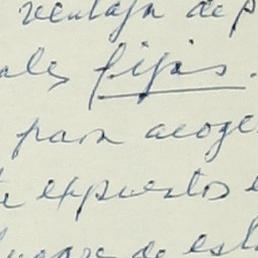 ventaja de p
ales fijas.
para acoge
e expuestos e
lugares de est